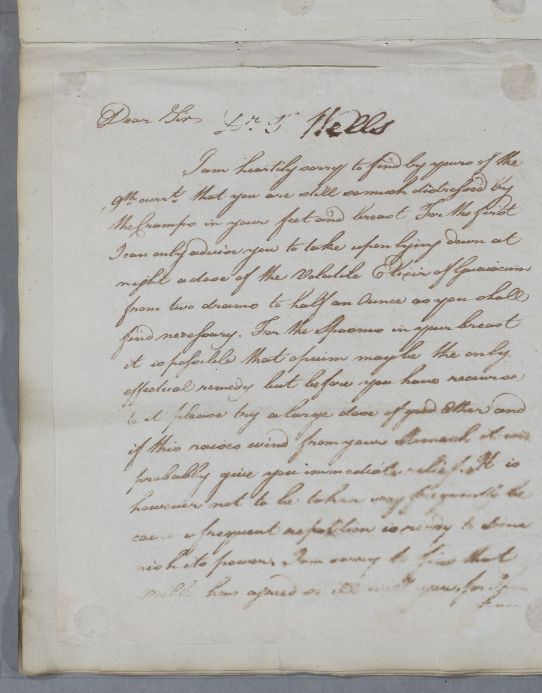 Dear Sir Dr. T. Wells
I am heartily sorry to find by yours of the
9th currt. that you are still so much distressed by
the Cramps in your feet and breast For the first
I can only advise you to take upon lying down at
night a dose of the Volatile Elixir of Guaiacum
from two drams to half an Ounce as you shall
find necessary. For the Spasms in your breast
it is possible that opium may be the only
effectual remedy but before you have recourse
to it please try a large dose of good Ether and
if this raises wind from your Stomach it will
probably give you immediate relief. It is
however not to be taken very frequently be
cause frequent repetition is ready to dimi
nish its power. I am sorry to find that
milk has agreed so ill with you, for I